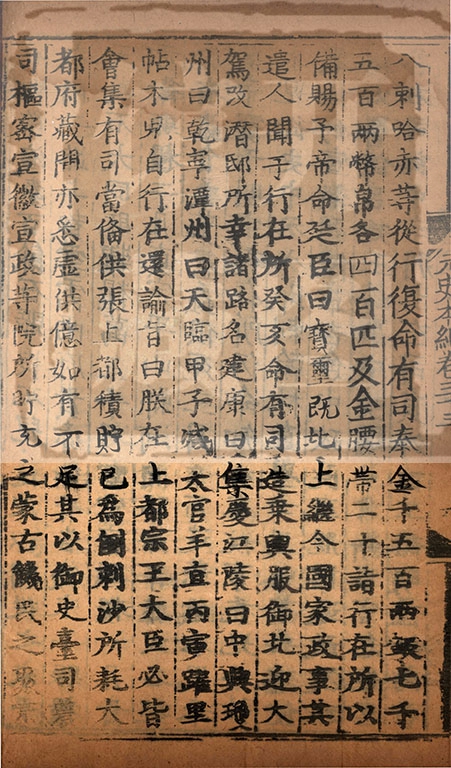 元史本紀卷三十三
八剌哈赤等從行復命有司奉金千五百两銀七千
五百两幣帛各四百匹及金腰帶二十詣行在所以
備賜予帝命廷臣曰寳璽既北上繼今國家政事其
遣人聞于行在所癸亥命有司造乗輿服御北迎大
駕改濳邸所幸諸路名建康曰集慶江陵曰中興瓊
州曰乾寧潭州曰天臨甲子減太官羊直丙寅躍里
帖木兒自行在還諭旨曰朕在上都宗王大臣必皆
會集有司當備供張上都積貯已爲倒剌沙所耗大
都府藏聞亦悉虚供億如有不足其以御史臺司農
司樞密宣徽宣政等院所貯充之蒙古饑民之聚京